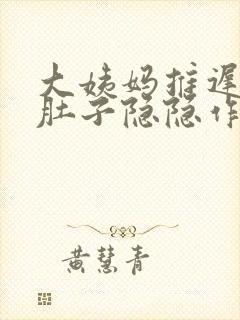 大姨妈推遟
肚子隐隐作
黄慧青